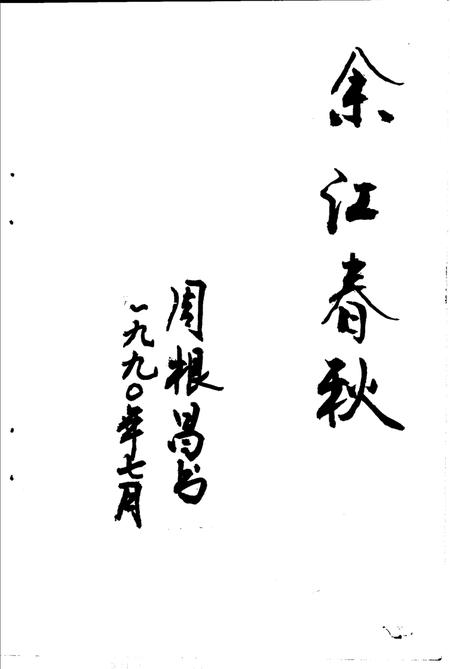 余江春秋
周根昌书
一九九〇年七月